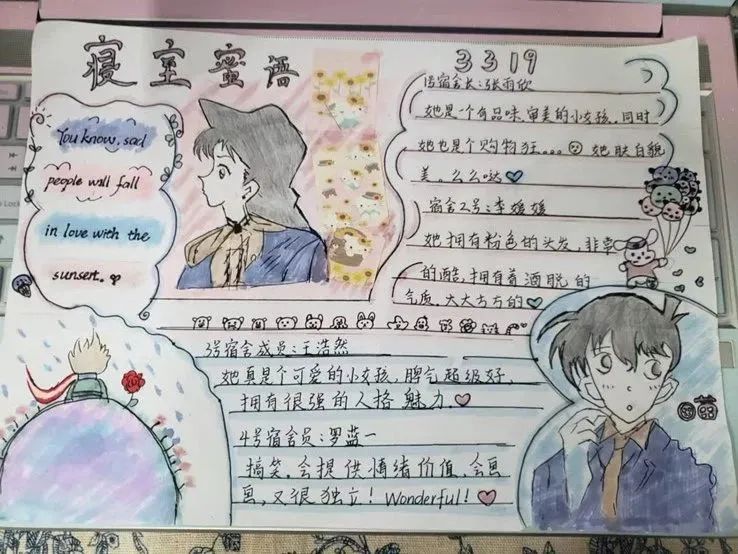 寝室蜜语
3319
You know, sad
people will fall
in love with the
sunsert.
1号宿舍长:张雨欣
她是一个有品味,审美的小女孩,同时
她也是个购物狂。。。她肤白貌
美,么么哒
宿舍2号:李媛媛
她拥有粉色的头发,非常
的酷,拥有着洒脱的
气质。大大方方的
3号宿舍成员:王浩然
她真是个可爱的小女孩,脾气超级好,
拥有很强的人格魅力.
4号宿舍员:罗蓝一
搞笑。会提供情绪价值,会画
画,又很独立!Wonderful!